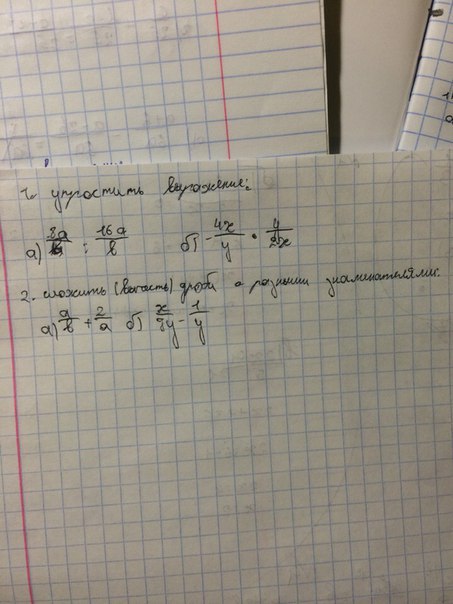 1. упростить выражение:
а) 8a/b : 16a/b б) -4x/y · y/2x
2. сложить (вычесть) дроби с разными знаменателями:
а) a/b + 2/a б) x/8y - 1/y